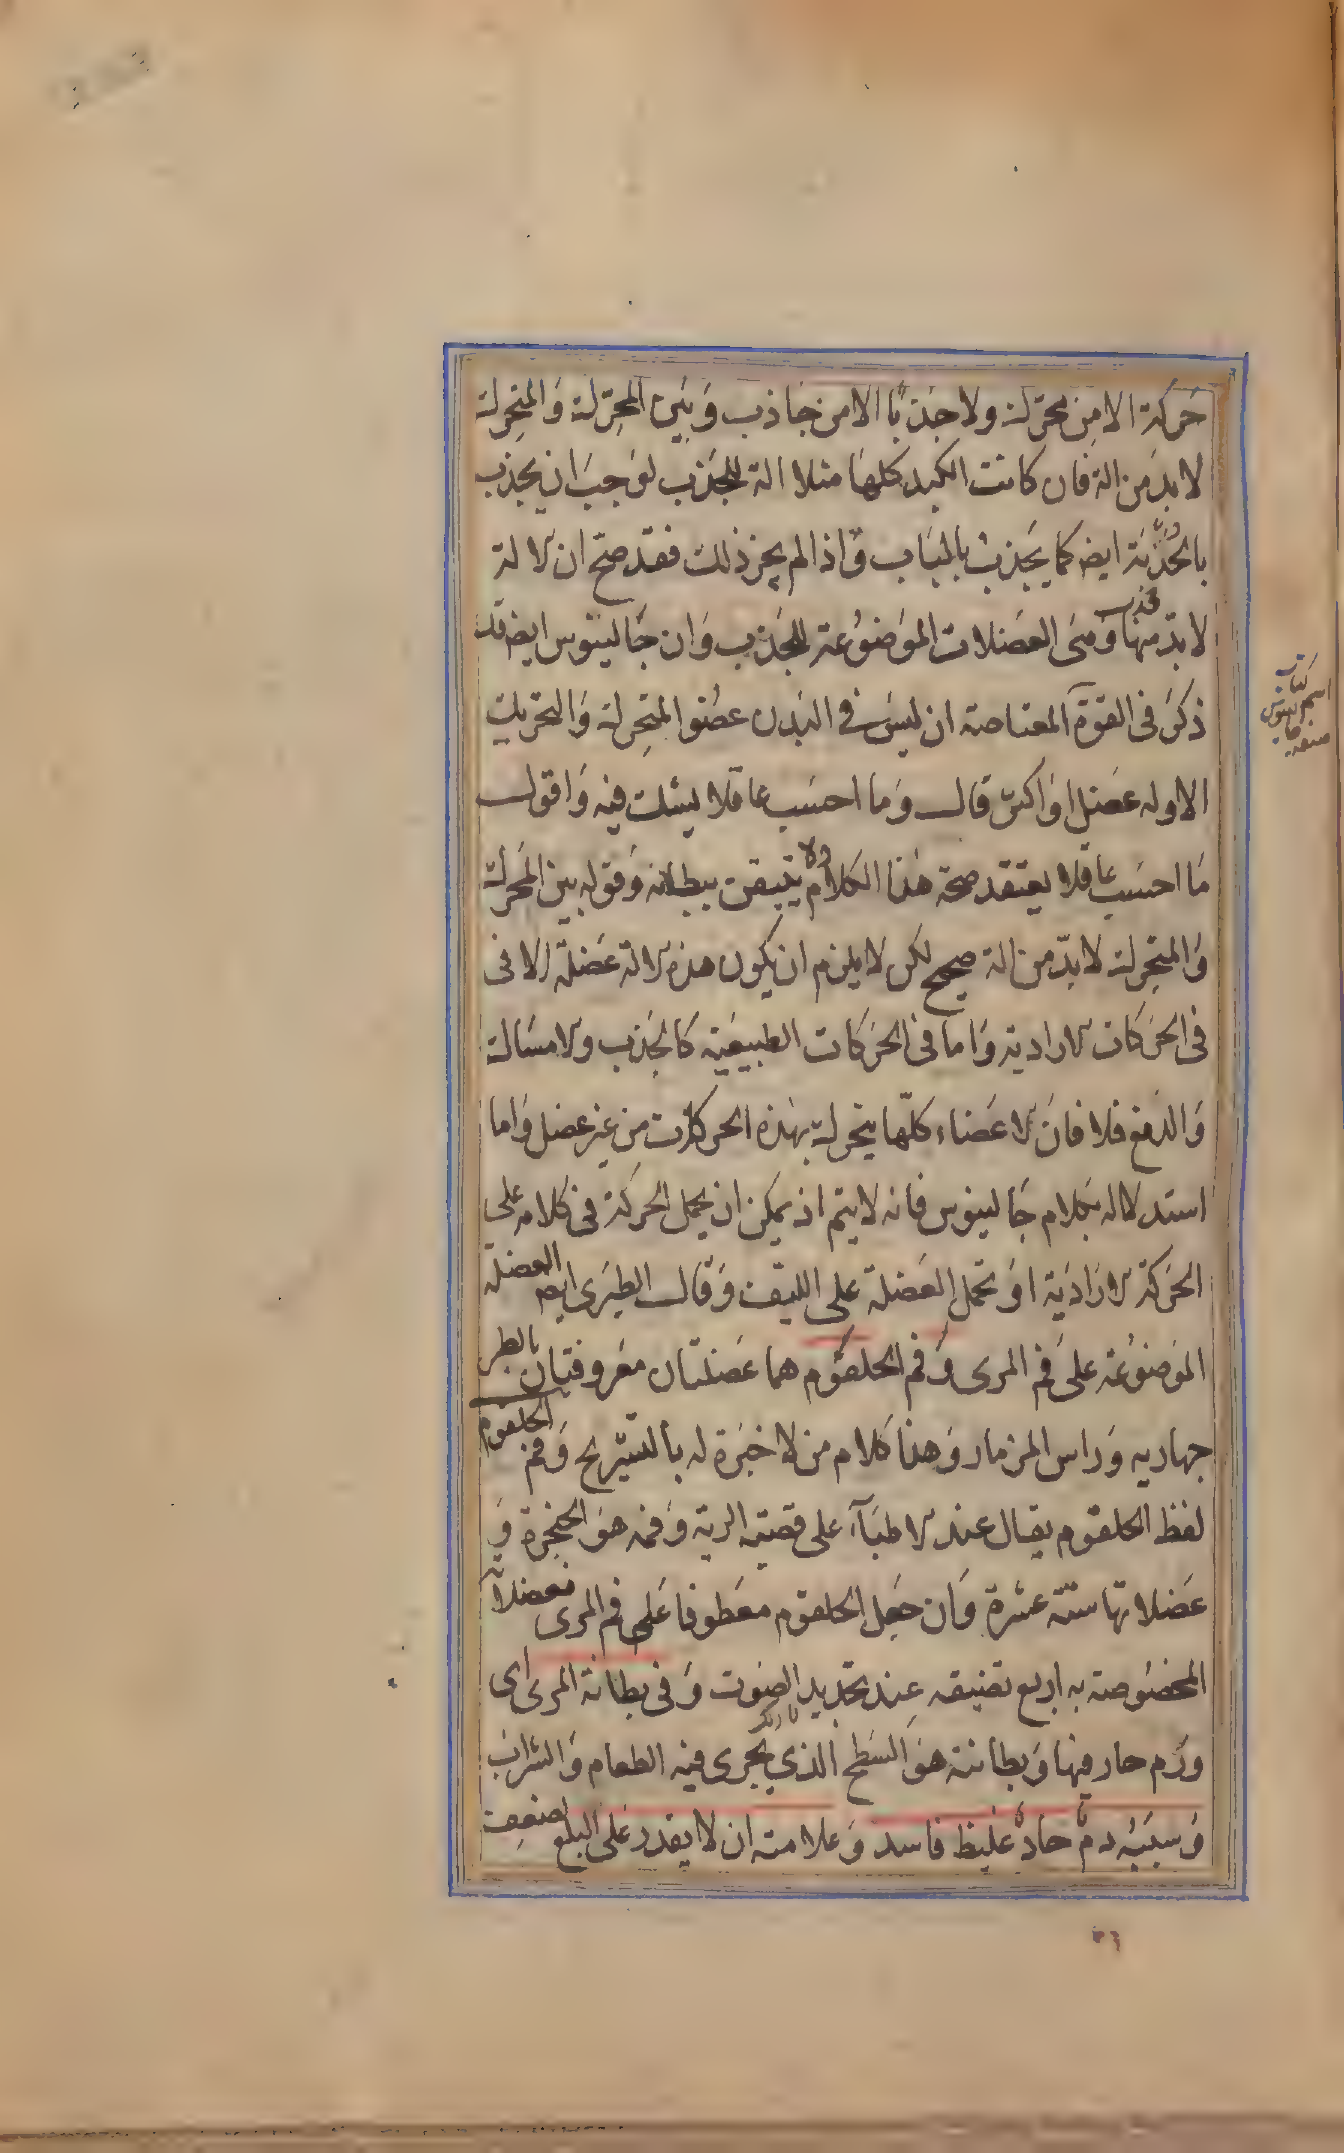 حركة الا من محرك ولا جذبا الا من جاذب وبين المحرك والمتحرك
لا بد من الة فان كانت الكبد كلها مثلا الة للجذب لوجب ان يجذب
بالحدبة ايضا كما يجذب بالباب واذا لم يجز ذلك فقد صح ان الالة
لا بد منها وهى العضلات الموضوعة للجذب وان جالينوس ايضا قد
ذكر فى القوة المعتاصة ان ليس فى البدن عضو المتحرك والتحريك
الا وله عضل او اكثر قال وما احسب عاقلا يشك فيه واقول
ما احسب عاقلا يعتقد صحة هذا الكلام ولا يتيقن ببطلانه وقوله بين المحرك
والمتحرك لا بد من الة صحيح لكن لا يلزم ان يكون هذه الالة عضلة الا فى
فى الحركات الارادية واما فى الحركات الطبيعية كالجذب والامساك
والدفع فلا فان الاعضاء كلها يتحرك بهذه الحركات من غير عضل واما
استدلاله بكلام جالينوس فانه لا يتم اذ يمكن ان يحمل الحركة فى كلامه على
الحركة الارادية او تحمل العضلة على الليف وقال الطبرى ايضا العضلة
الموضوعة على فم المرى وفم الحلقوم هما عضلتان معروفتان
وراس المزمار وهذا كلام من لا خبرة له بالتشريح وفم الحلقوم
لفظ الحلقوم يقال عند الاطباء على قصبة الرية وفمه هو الحنجرة و
عضلاتها ستة عشرة وان جعل الحلقوم معطوفا على فم المرى فعضلاته
المخصوصة به اربع تضيقه عند تحديد الصوت وفى بطانة المرى اى
ورم حار فيها وبطانته هو السطح الذي يجرى فيه الطعام والشراب
وسببه دم حاد غليظ فاسد وعلامته ان لا يقدر على البلع لضعف
اسم كتاب